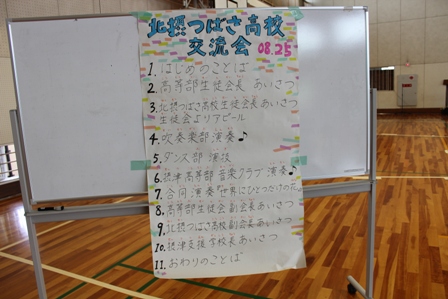 北摂つばさ高校
交流会 08.25
1. はじめのことば
2. 高等部生徒会長 あいさつ
3. 北摂つばさ高校生徒会長 あいさつ
生徒会よりアピール
4. 吹奏楽部 演奏♪
5. ダンス部 演技
6. 摂津高等部 音楽クラブ 演奏♪
7. 合同演奏「世界にひとつだけの花」
8. 高等部生徒会副会長 あいさつ
9. 北摂つばさ高校副会長 あいさつ
10. 摂津支援学校長 あいさつ
11. おわりのことば